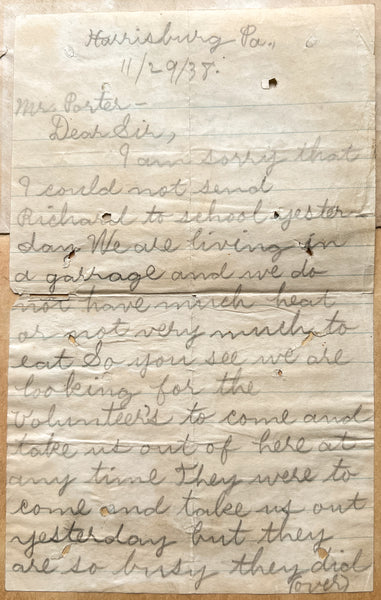 Harrisburg Pa.,
11/29/38.
Mr. Porter-
Dear Sir,
I am sorry that
I could not send
Richard to school yester-
day We are living in
a garrage and we do
not have much heat
or not very much to
eat So you see we are
looking for the
Volunteer's to come and
take us out of here at
any time They were to
come and take us out
yesterday but they
are so busy they did
(over)